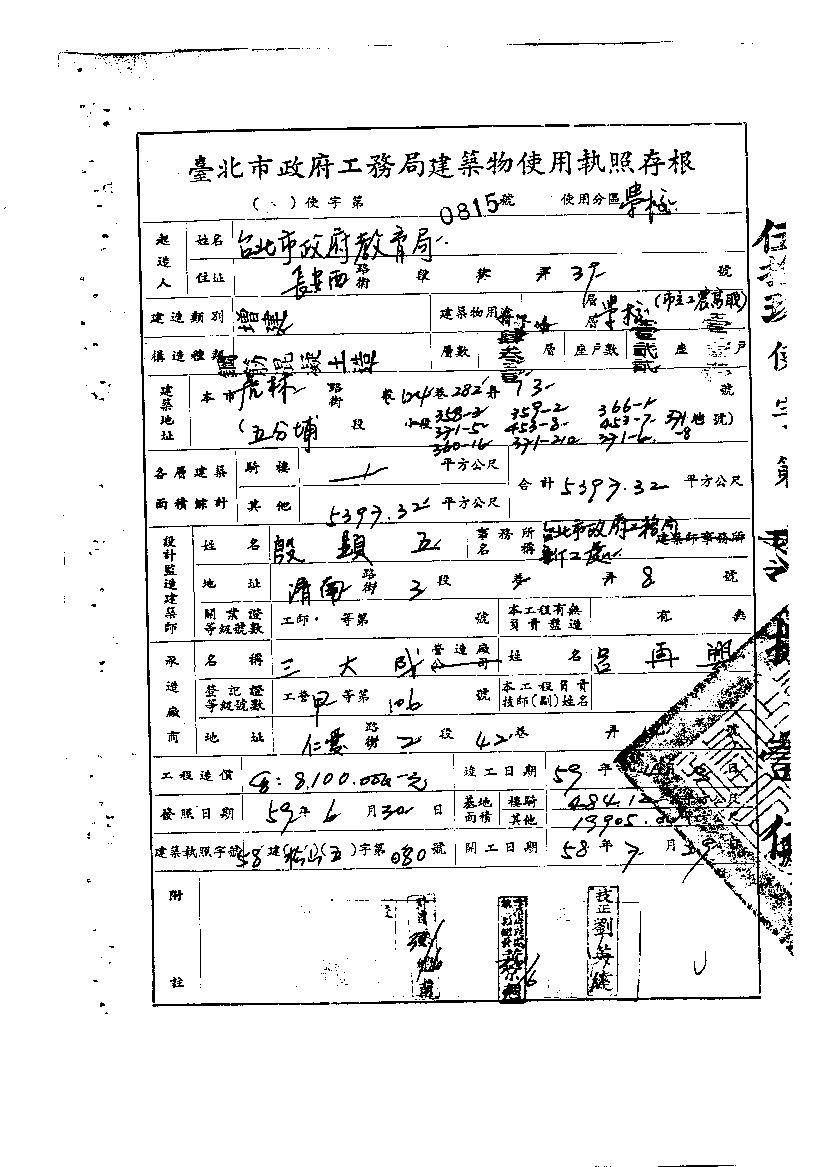 臺北市政府工務局建築物使用執照存根
( )使字第 0815 號 使用分區 學校
起造人 姓名 台北市政府教育局
住址 長安西 路街 段 巷 弄 39 號
建造類別 增建 建築物用途 層層 學校 (市立工農高職)
構造種類 鋼筋混凝土造 層數 肆叁壹 層 座戶數 壹貳貳 座 戶
建築地址 本市 虎林 路街 巷 124 巷 282 弄 13 號
(五分埔 段 小段 358-2 359-2 366-1
371-5 453-8 453-7 371-8 地號)
360-16 371-212 371-6
各層建築面積餘計 騎樓 平方公尺 合計 5397.32 平方公尺
其他 5397.32 平方公尺
設計監造建築師 姓名 殷顯五 事務所名稱 台北市政府工務局新工處 建築師事務所
地址 濟南 路街 3 段 巷 弄 8 號
開業證等級號數 工師 等第 號 本工程有無負責監造 有 無
承造廠商 名稱 三大成 營造廠公司 姓名 呂再興
登記證等級號數 工營 甲 等第 106 號 本工程負責技師(副)姓名
地址 仁愛 路街 2 段 42 巷 弄 號
工程造價 8,100.000元 竣工日期 59 年 日
發照日期 59 年 6 月 30 日 基地面積 樓騎 484.12 平方公尺
其他 13905. 平方公尺
建築執照字號 58 建(松山)(五)字第 080 號 開工日期 58 年 7 月 日
附註
技正 劉
使字第